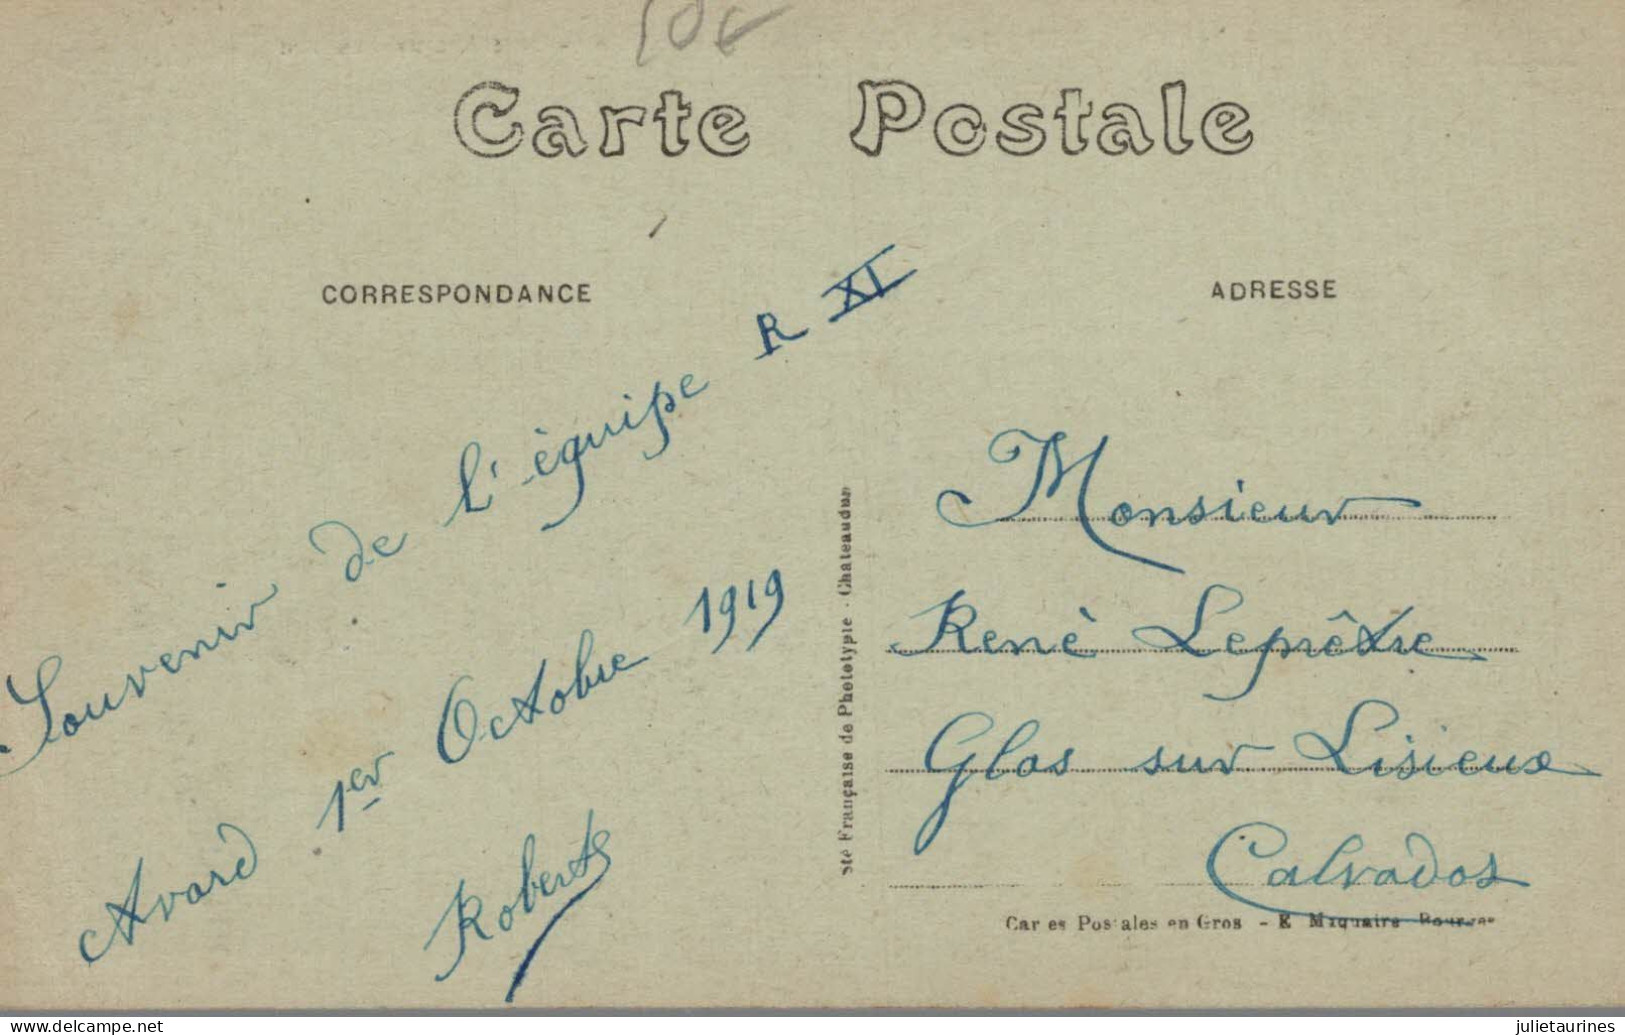 10€
Carte Postale
CORRESPONDANCE
ADRESSE
Souvenir de l'équipe R XI
Avord 1er Octobre 1919
Robert
Sté Française de Phototypie - Chateaudun
Monsieur
René Leprêtre
Glos sur Lisieux
Calvados
Car es Pos ales en Gros - E Maquaire Bourges
www.delcampe.net
julietaurines